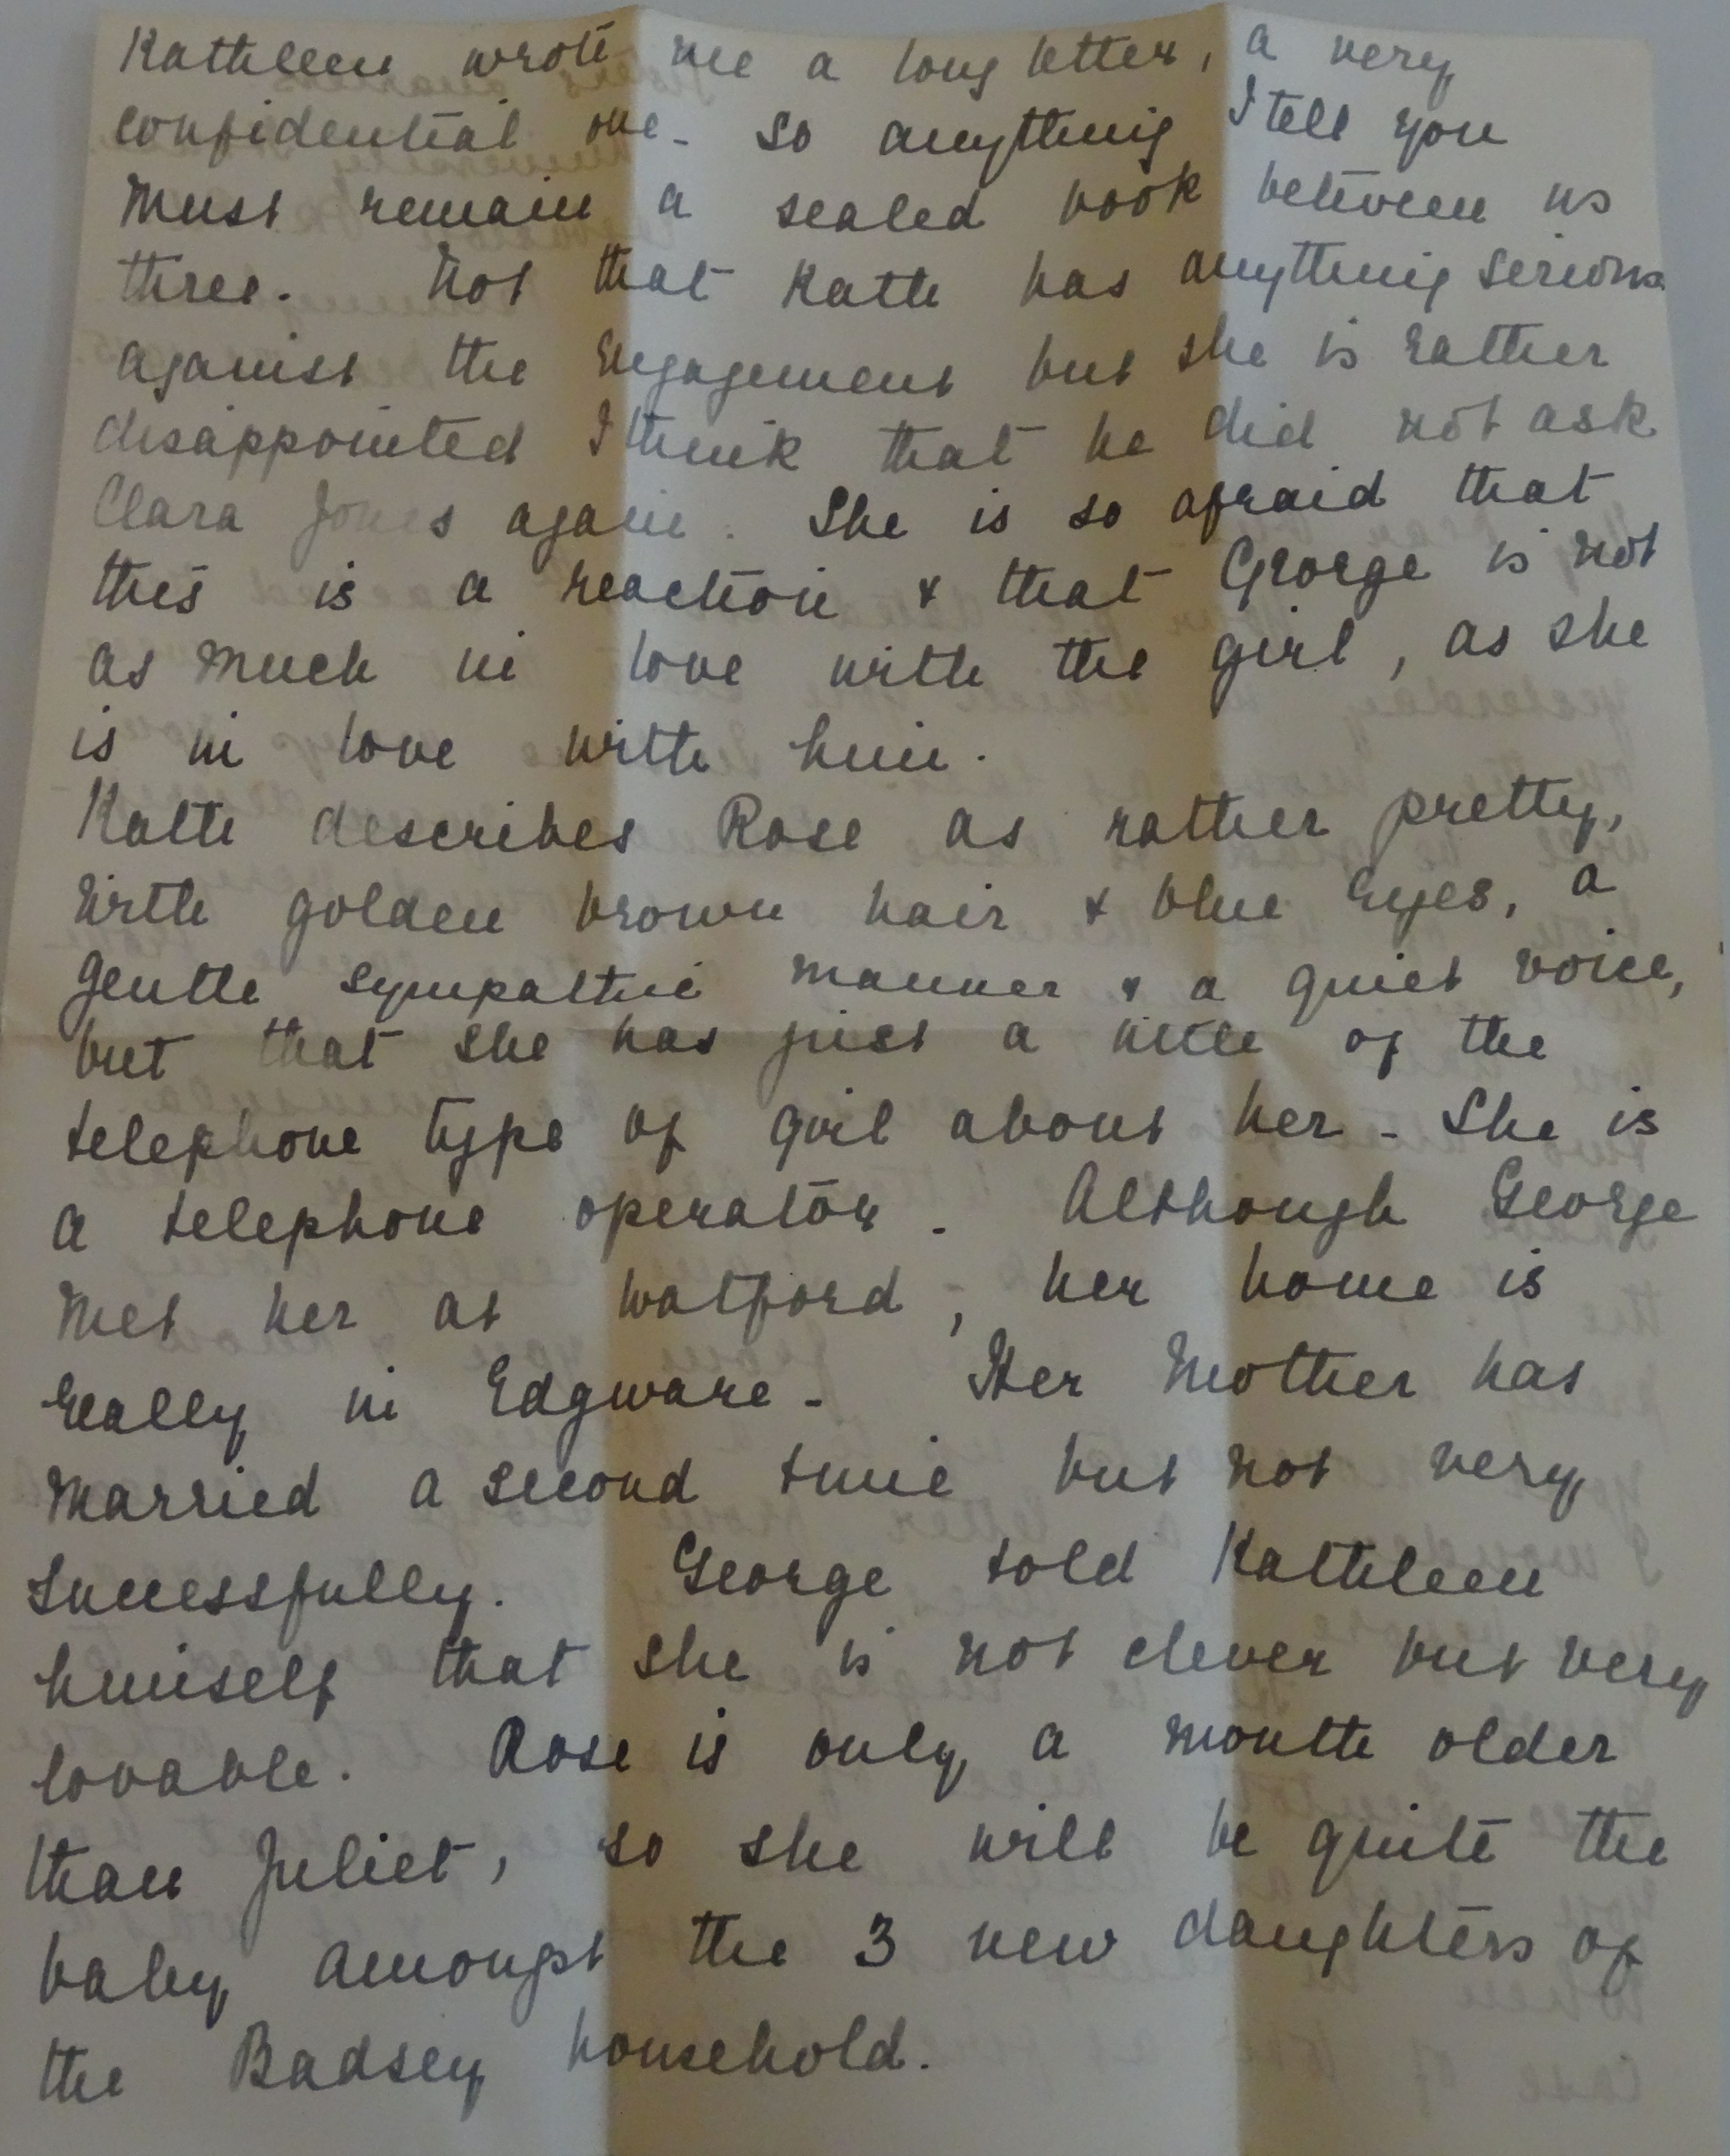 Kathleen wrote me a long letter, a very
confidential one - so anything I tell you
must remain a sealed book between us
three. Not that Kath has anything serious
against the Engagement but she is rather
disappointed I think that he did not ask
Clara Jones again. She is so afraid that
this is a reaction & that George is not
as much in love with the girl, as she
is in love with him.
Kath describes Rose as rather pretty,
with golden brown hair & blue eyes, a
gentle sympathetic manner & a quiet voice,
but that she has just a little of the
telephone type of girl about her - She is
a telephone operator. Although George
met her at Watford, her home is
really in Edgware - Her Mother has
married a second time but not very
successfully. George told Kathleen
himself that she is not clever but very
lovable. Rose is only a month older
than Juliet, so she will be quite the
baby amongst the 3 new daughters of
the Badsey household.